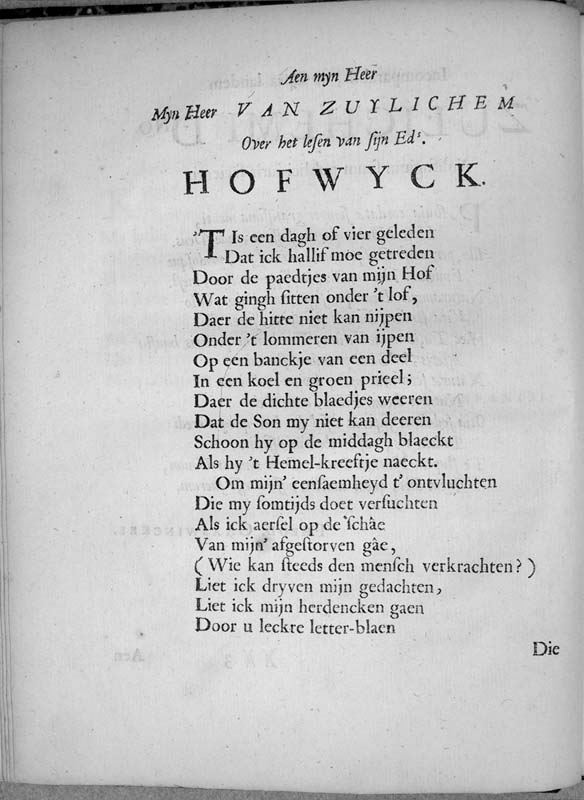 Aen myn Heer
Myn Heer VAN ZUYLICHEM
Over het leſen van ſijn Edˢ.
HOFWYCK.
'T Is een dagh of vier geleden
Dat ick hallif moe getreden
Door de paedtjes van mijn Hof
Wat gingh ſitten onder 't lof,
Daer de hitte niet kan nijpen
Onder 't lommeren van ijpen
Op een banckje van een deel
In een koel en groen prieel;
Daer de dichte blaedjes weeren
Dat de Son my niet kan deeren
Schoon hy op de middagh blaeckt
Als hy 't Hemel-kreeftje naeckt.
Om mijn' eenſaemheyd t' ontvluchten
Die my ſomtijds doet verſuchten
Als ick aerſel op de ſchâe
Van mijn' afgeſtorven gâe,
(Wie kan ſteeds den menſch verkrachten?)
Liet ick dryven mijn gedachten,
Liet ick mijn herdencken gaen
Door u leckre letter-blaen
Die